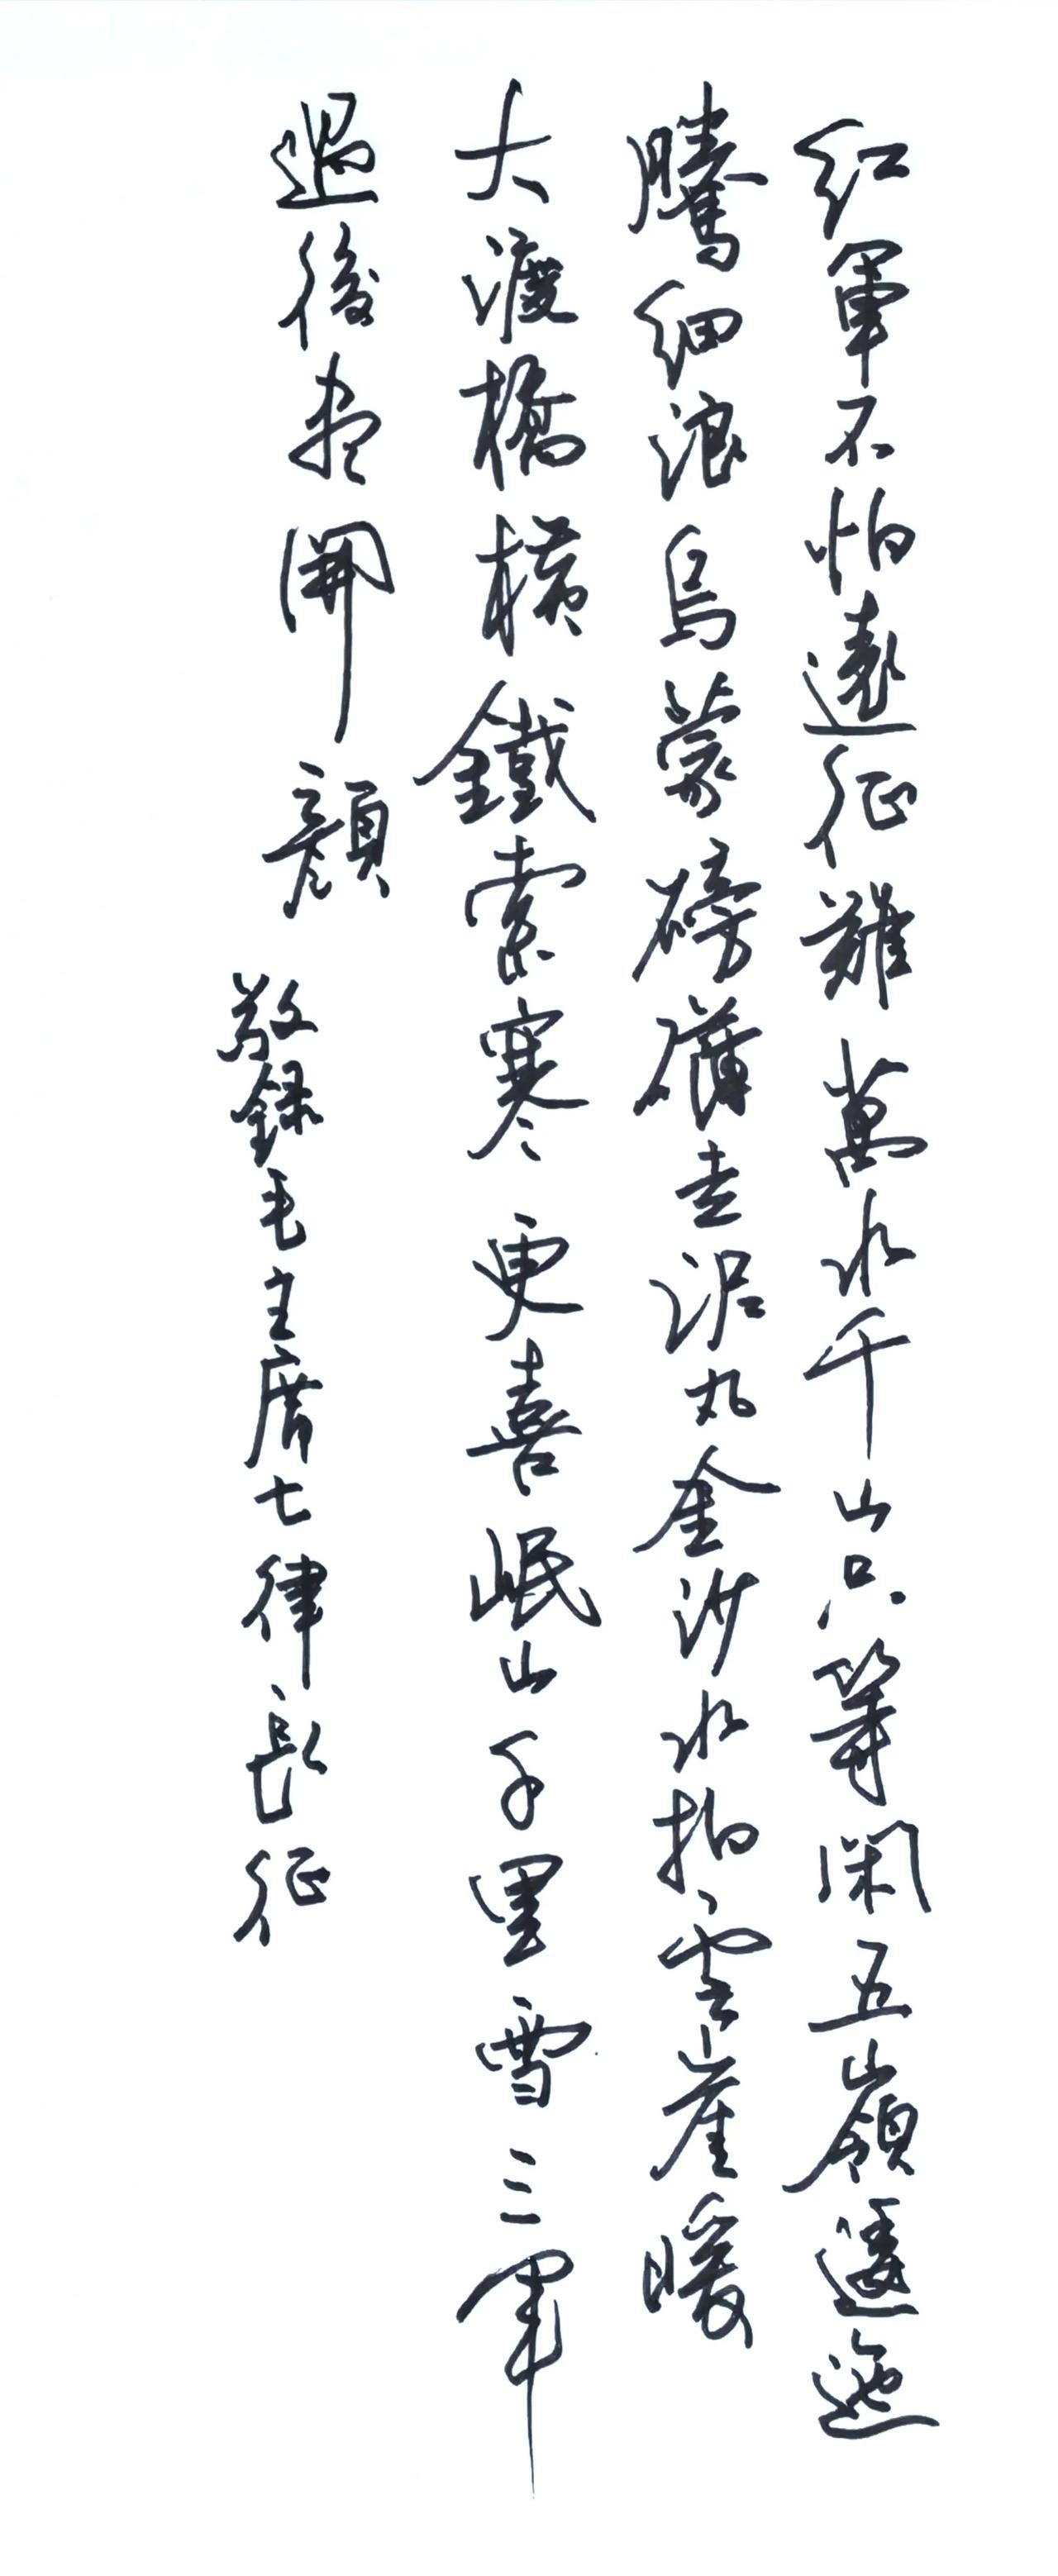 紅軍不怕遠征難萬水千山只等閑五嶺逶迤
騰細浪烏蒙磅礴走泥丸金沙水拍雲崖暖
大渡橋橫鐵索寒更喜岷山千里雪三軍
過後盡開顏
敬録毛主席七律長征